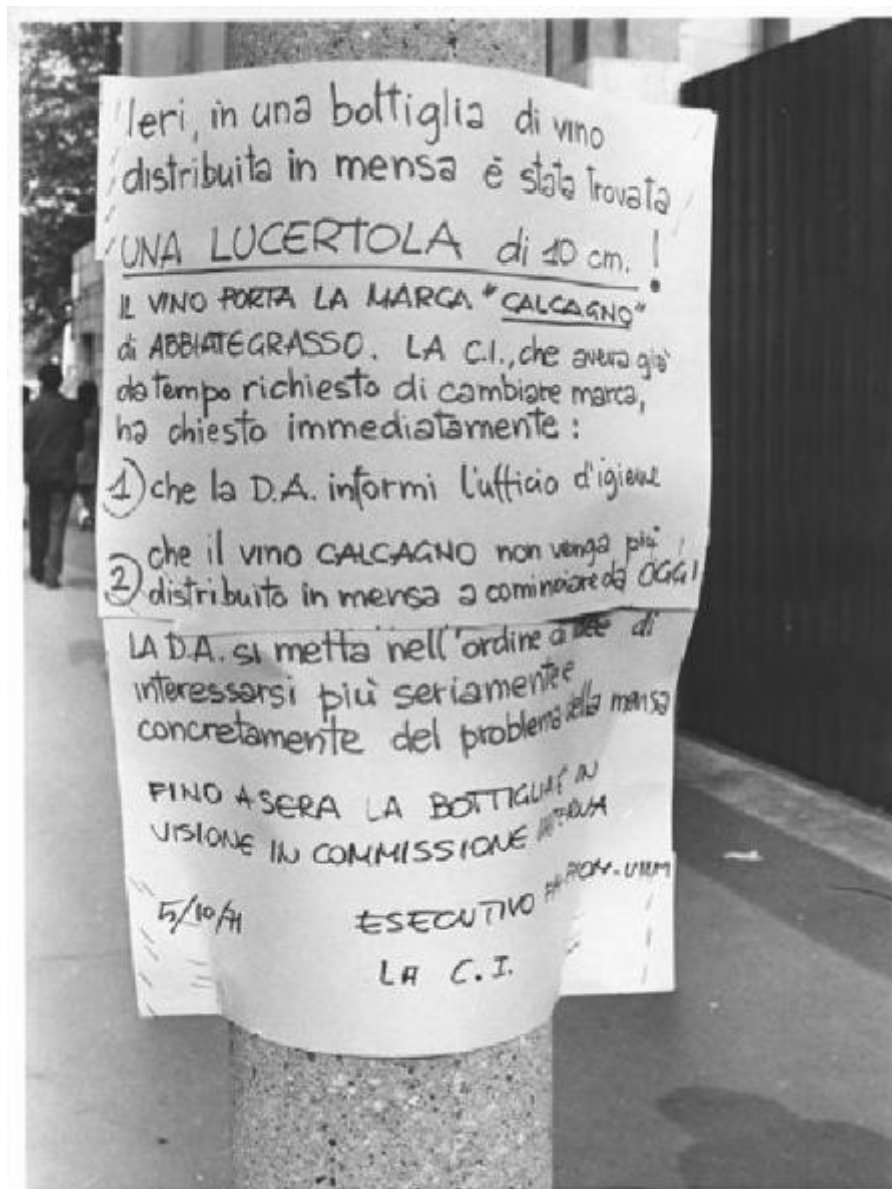 Ieri, in una bottiglia di vino
distribuita in mensa è stata trovata
UNA LUCERTOLA di 10 cm. !
IL VINO PORTA LA MARCA "CALCAGNO"
di ABBIATEGRASSO. LA C.I., che aveva già
da tempo richiesto di cambiare marca,
ha chiesto immediatamente :
1) che la D.A. informi l'ufficio d'igiene
2) che il vino CALCAGNO non venga più
distribuito in mensa a cominciare da OGGI !
LA D.A. si metta nell'ordine d'idee di
interessarsi più seriamente e
concretamente del problema della mensa
FINO A SERA LA BOTTIGLIA È IN
VISIONE IN COMMISSIONE INTERNA
5/10/71 ESECUTIVO FIM-FIOM-UILM
LA C.I.